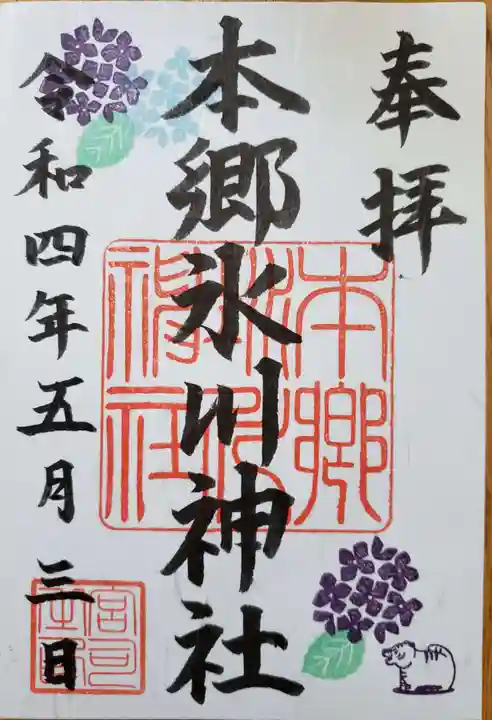 奉拝
本郷氷川神社
令和四年五月三日
本郷氷川神社